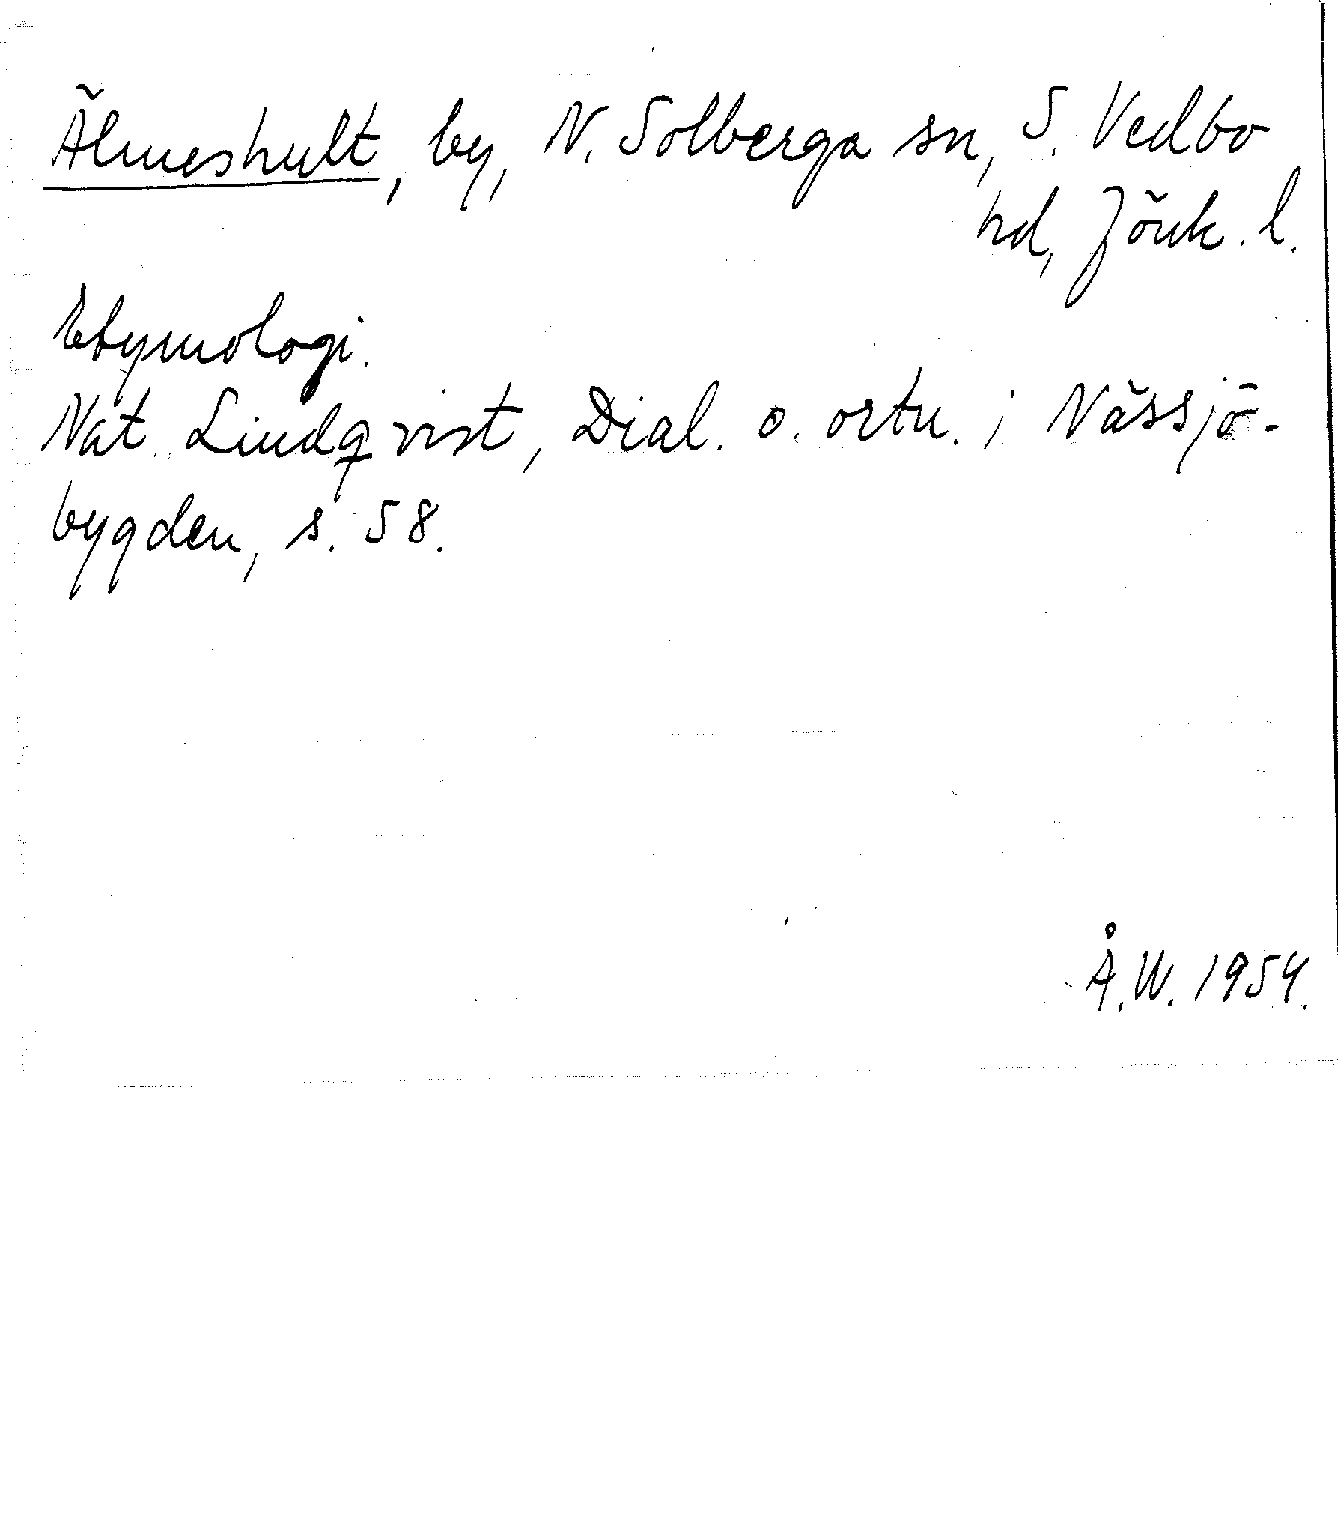 Älmeshult, by, N. Solberga sn, S. Vedbo
hd, Jönk. l.
Etymologi.
Nat. Lindqvist, Dial. o. ortn. i Nässjö-
bygden, s. 58.
Å.W. 1954.